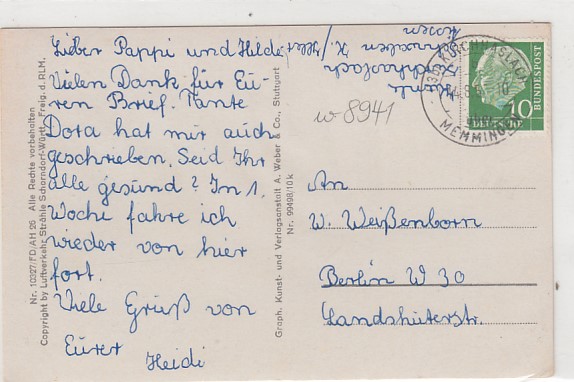 Lieber Pappi und Hilde,
Vielen Dank für Eu-
ren Brief. Tante
Dora hat mir auch
geschrieben. Seid Ihr
alle gesund? In 1.
Woche fahre ich
wieder von hier
fort.
Viele Grüß von
Eurer
Heidi
w 8941
An
W. Weißenborn
Berlin W 30
Landshuterstr.
KIRCHHASLACH
MEMMINGEN
10
DEUTSCHE
BUNDESPOST
Nr. 10327/FD/AH 25 Alle Rechte vorbehalten
Copyright by Luftverkehr Strähle Schorndorf-Württ. Freig. d. RLM.
Graph. Kunst- und Verlagsanstalt A. Weber & Co., Stuttgart
Nr. 99498/10k